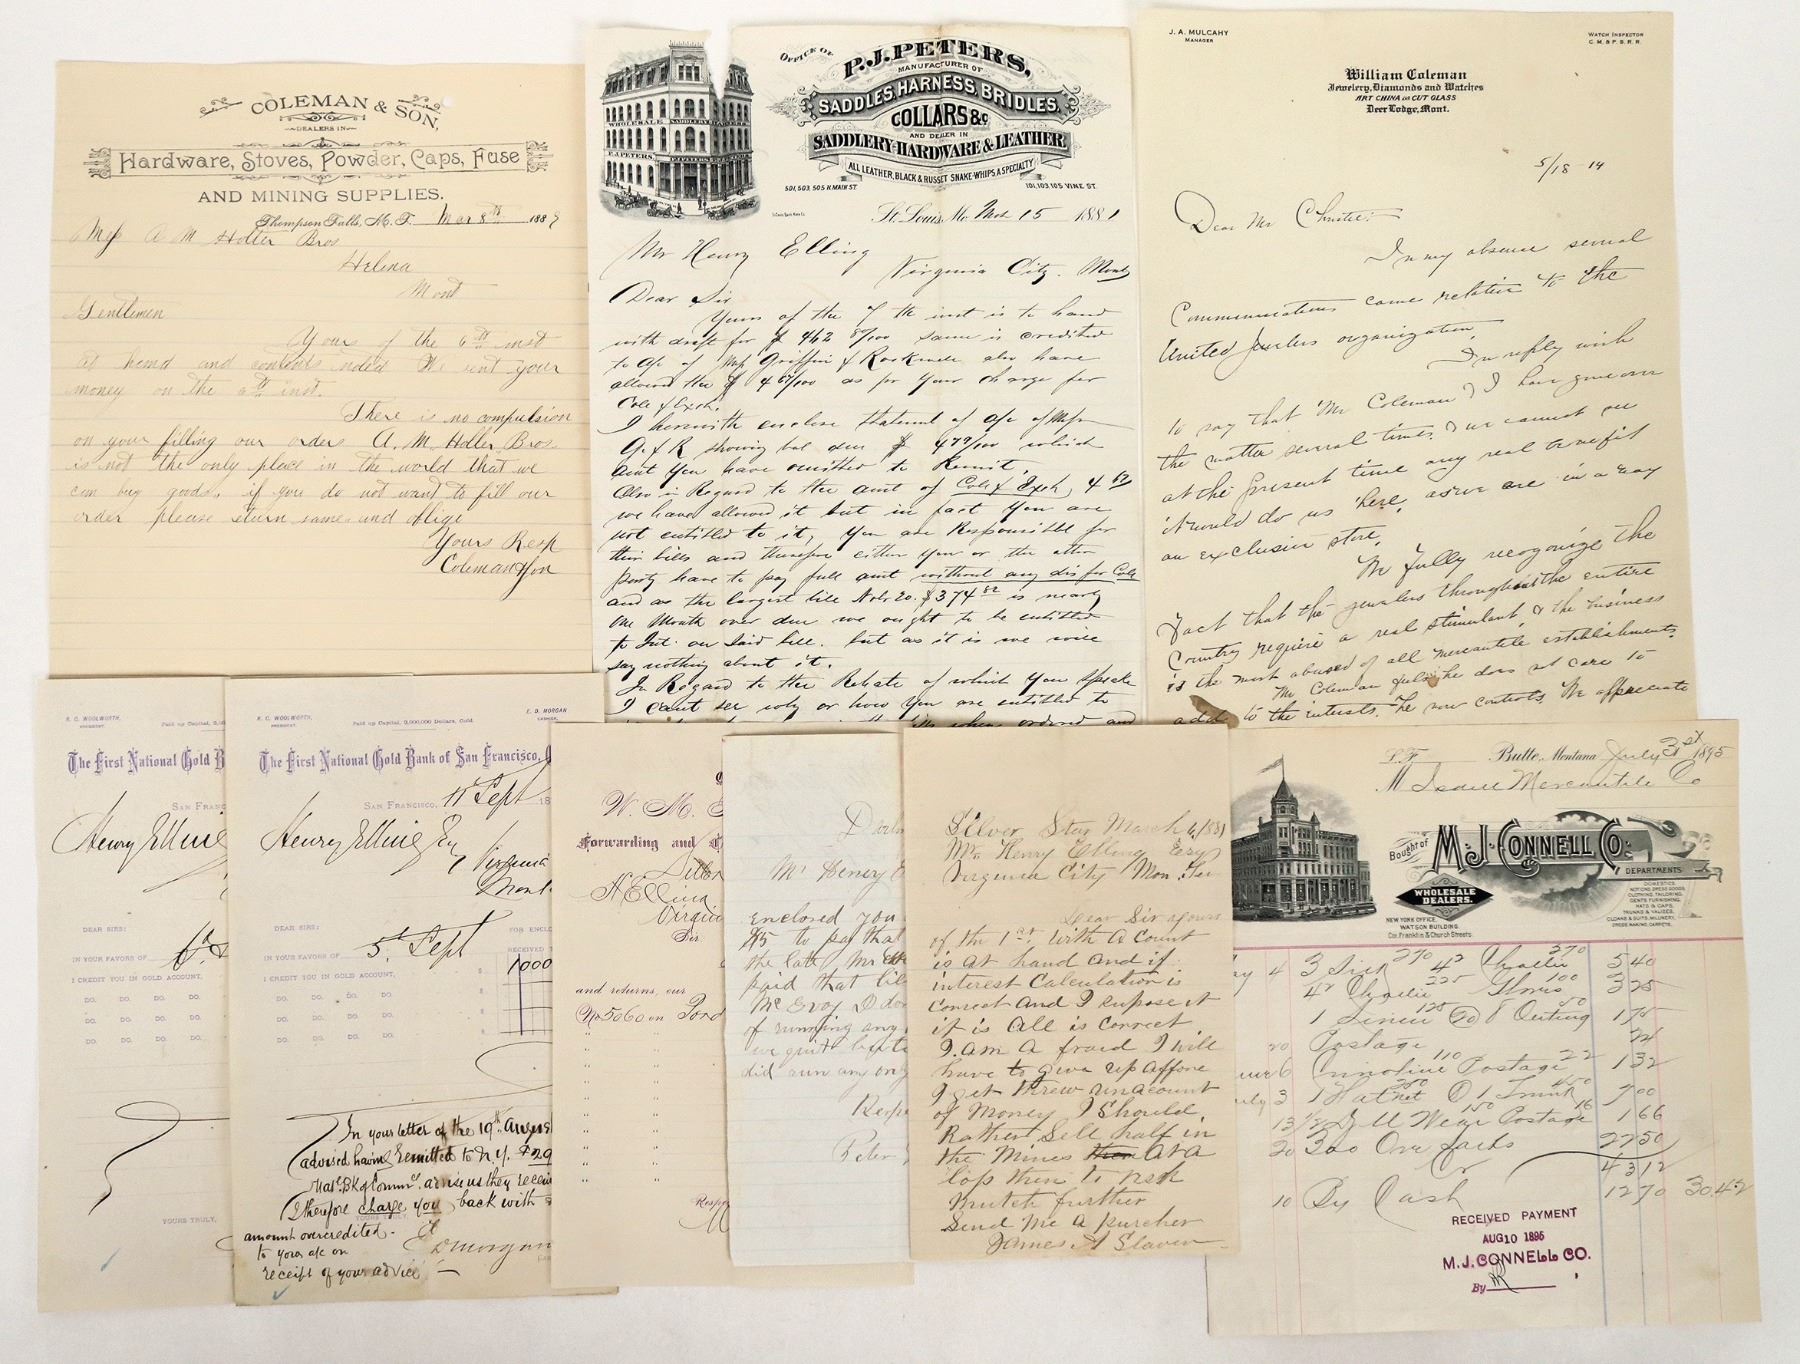 COLEMAN & SON,
DEALERS IN
Hardware, Stoves, Powder, Caps, Fuse
AND MINING SUPPLIES.
Thompson Falls, M. T. Mar 8th 188
A M Holter Bros
Helena
Mont
Gentlemen
Yours of the 6th inst
at hand and contents noted We sent your
money on the 6th inst.
There is no compulsion
on your filling our orders A. M. Holter Bros
is not the only place in the world that we
can buy goods, if you do not want to fill our
order please return same and oblige
Yours Resp
Coleman & Son
OFFICE OF
P. J. PETERS,
MANUFACTURER OF
SADDLES, HARNESS, BRIDLES,
COLLARS &c
AND DEALER IN
SADDLERY-HARDWARE & LEATHER
ALL LEATHER, BLACK & RUSSET SNAKE-WHIPS, A SPECIALTY
501, 503, 505 N. MAIN ST.
101, 103, 105 VINE ST.
WHOLESALE SADDLERY HARNESS
P. J. PETERS
St. Louis, Mo. 15 1881
Mr Henry Elling
Virginia City. Mont
Dear Sir
Yours of the 7th inst is to hand
with draft for $ 462 8/100 same is credited
to a/c of Griffin & also have
allowed the $ 4 as per your charge for
Col & Exch.
I herewith enclose statement of a/c of
G. & R showing bal due $ which
amt you have omitted to Remit.
Also in Regard to the amt of Col & Exch,
we have allowed it but in fact you are
not entitled to it, you are Responsible for
their bills and therefore either you or the other
party have to pay full amt without any dis for Col
and as the largest bill $374 82 is nearly
one Month over due we ought to be entitled
to Int. on said bill. but as it is we will
say nothing about it.
In Regard to the Rebate of which you speake
I cannt see why or how you are entitled to
when ordered and
J. A. MULCAHY
MANAGER
WATCH INSPECTOR
C. M. & P. S. R. R.
William Coleman
Jewelery, Diamonds and Watches
ART CHINA and CUT GLASS
Deer Lodge, Mont.
5/18 14
Dear Mr Christie:
In my absence several
Communications came relative to the
United Jewelers organization,
In reply wish
to say that Mr Coleman & I have gone over
the matter several times & we cannot see
at the present time any real benefit
it would do us here, as we are in a way
an exclusive store,
We fully recogonize the
Fact that the jewelers throughout the entire
Country require a real stimulant, & the business
is the most abused of all mercantile establishments.
Mr Coleman feels he does not care to
add to the interests he now controls. We appreciate
R. C. WOOLWORTH,
PRESIDENT.
Paid up Capital,
The First National Gold B
SAN FRANC
Henry Elling
DEAR SIRS:
IN YOUR FAVORS OF
I CREDIT YOU IN GOLD ACCOUNT,
DO. DO. DO.
DO. DO. DO.
DO. DO. DO.
YOURS TRULY,
R. C. WOOLWORTH,
PRESIDENT.
Paid up Capital, 2,000,000 Dollars, Gold.
E. D. MORGAN
CASHIER.
The First National Gold Bank of San Francisco,
SAN FRANCISCO, 11 Sept 18
Henry Elling Esq
Virginia
Mont
DEAR SIRS:
FOR ENCLO
IN YOUR FAVORS OF 5th Sept
RECEIVED
I CREDIT YOU IN GOLD ACCOUNT,
$ 1000
DO. DO. DO.
DO. DO. DO.
DO. DO. DO.
In your letter of the 19th August
advised having remitted to N.Y. $29
Natl. Bk of Comm. advise us they receiv
I therefore charge you back with
amount overcredited.
to your a/c on
receipt of your advice
YOURS TRULY,
E D Morgan
W. M.
Forwarding and
H Elling
Virgin
Sir
and returns, our
No 5060 on
Respy
Mr Henry E
Enclosed you
$5 to pay that
the late Mr
paid that
McEvoy
of running any
we quit
did run any
Resp
Peter
Silver Star March 6, 1881
Mr. Henry Elling Esq
Virginia City Mon. Ter
Dear Sir yours
of the 1st. With a Count
is at hand and if
interest Calculation is
correct and I supose it
if is All is correct
I am a fraid I will
have to give up affore
I get threw un account
of Money I Should
Rathers Sell half in
the Mines at a
lop then to resk
mutch further
Send me a purcher
James A Slaven
Butte, Montana July 31st 1895
M Isdell Mercantile Co
Bought of M. J. CONNELL CO.
WHOLESALE DEALERS.
DEPARTMENTS
DOMESTICS,
NOTIONS, DRESS GOODS,
CLOTHING, TAILORING,
GENTS FURNISHING,
HATS & CAPS,
TRUNKS & VALISES,
CLOAKS & SUITS, MILLINERY,
DRESS MAKING, CARPETS,
NEW YORK OFFICE,
WATSON BUILDING.
Cor. Franklin & Church Streets.
4 3 270 42 270 5 40
225 Gloves 100 3 25
1 Linen 125 Outing 50 1 75
20 Postage 24
6 Crinoline 110 Postage 22 1 32
3 1 Hat 250 1 Trunk 450 7 00
13 150 Postage 16 1 66
20 300 22 50
43 12
Cr
10 By Cash 12 70 30.42
RECEIVED PAYMENT
AUG 10 1895
M. J. CONNELL CO.
By